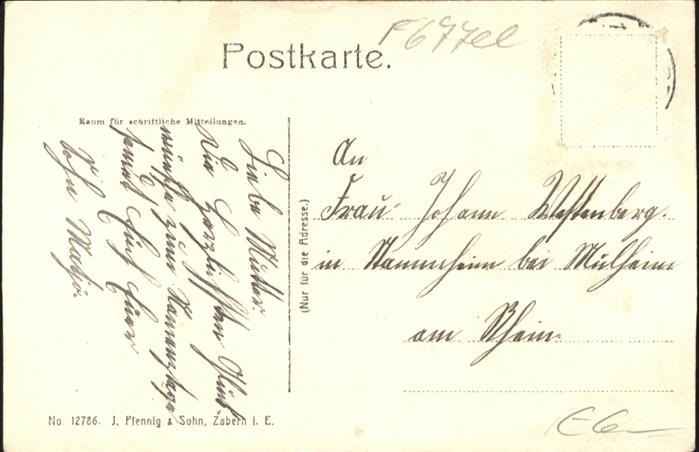 Postkarte.
F677el
Raum für schriftliche Mitteilungen.
Liebe Mutter.
Die herzlichsten Glück
wünsche zum Namenstage
sendet Euch Euer
Sohn
(Nur für die Adresse.)
An
Frau Johann Westenberg.
in Stammheim bei Mülheim
am Rhein.
No. 12786. J. Pfennig & Sohn, Zabern i. E.